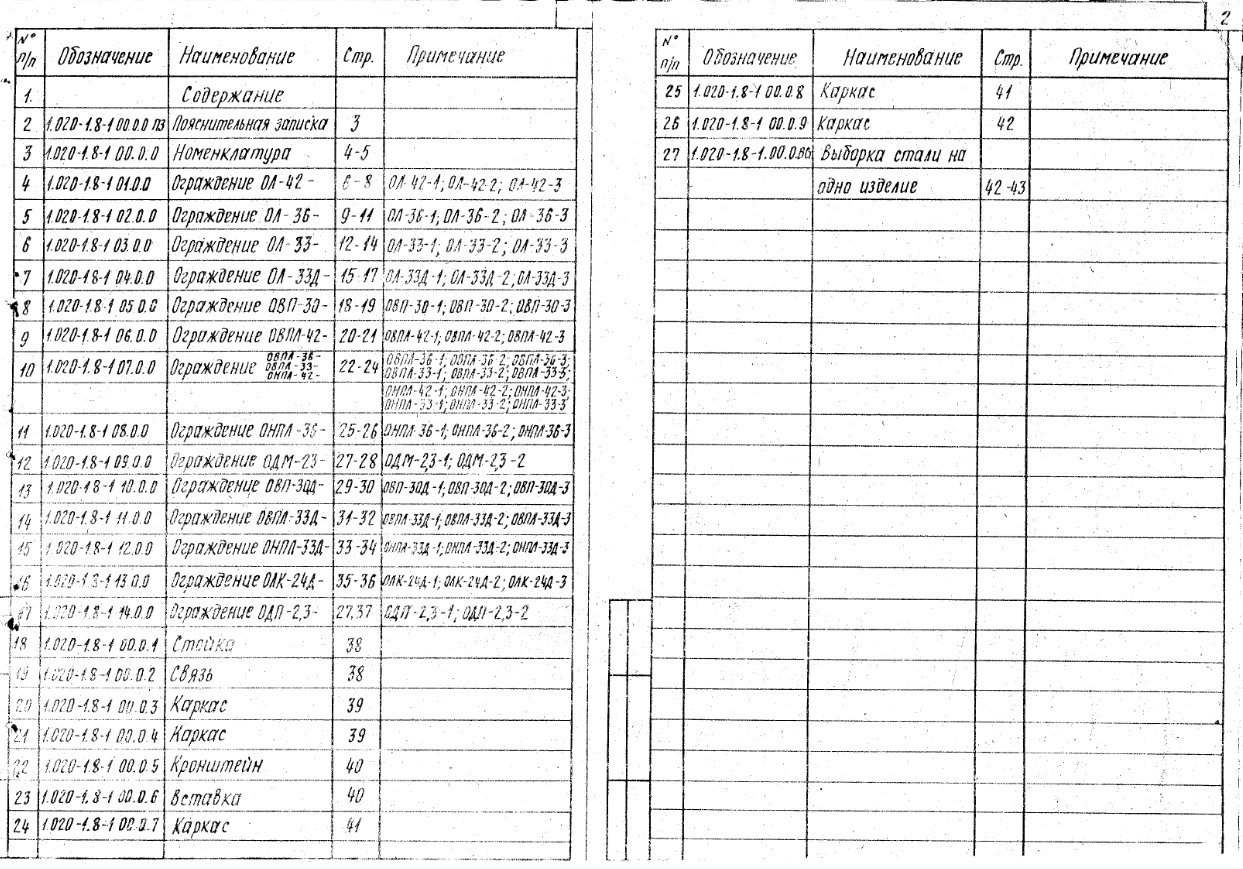 2
№ п/п Обозначение Наименование Стр. Примечание
1. Содержание
2 1.020-1.8-1 00.0.0 ПЗ Пояснительная записка 3
3 1.020-1.8-1 00.0.0 Номенклатура 4-5
4 1.020-1.8-1 01.0.0 Ограждение ОЛ-42- 6-8 ОЛ-42-1; ОЛ-42-2; ОЛ-42-3
5 1.020-1.8-1 02.0.0 Ограждение ОЛ-36- 9-11 ОЛ-36-1; ОЛ-36-2; ОЛ-36-3
6 1.020-1.8-1 03.0.0 Ограждение ОЛ-33- 12-14 ОЛ-33-1; ОЛ-33-2; ОЛ-33-3
7 1.020-1.8-1 04.0.0 Ограждение ОЛ-33Д- 15-17 ОЛ-33Д-1; ОЛ-33Д-2; ОЛ-33Д-3
8 1.020-1.8-1 05.0.0 Ограждение ОВП-30- 18-19 ОВП-30-1; ОВП-30-2; ОВП-30-3
9 1.020-1.8-1 06.0.0 Ограждение ОВПЛ-42- 20-21 ОВПЛ-42-1; ОВПЛ-42-2; ОВПЛ-42-3
10 1.020-1.8-1 07.0.0 Ограждение ОВПЛ-36- ОВПЛ-33- ОНПЛ-42- 22-24 ОВПЛ-36-1; ОВПЛ-36-2; ОВПЛ-36-3;
ОВПЛ-33-1; ОВПЛ-33-2; ОВПЛ-33-3;
ОНПЛ-42-1; ОНПЛ-42-2; ОНПЛ-42-3;
ОНПЛ-33-1; ОНПЛ-33-2; ОНПЛ-33-3
11 1.020-1.8-1 08.0.0 Ограждение ОНПЛ-36- 25-26 ОНПЛ-36-1; ОНПЛ-36-2; ОНПЛ-36-3
12 1.020-1.8-1 09.0.0 Ограждение ОДМ-23- 27-28 ОДМ-2,3-1; ОДМ-2,3-2
13 1.020-1.8-1 10.0.0 Ограждение ОВП-30Д- 29-30 ОВП-30Д-1; ОВП-30Д-2; ОВП-30Д-3
14 1.020-1.8-1 11.0.0 Ограждение ОВПЛ-33Д- 31-32 ОВПЛ-33Д-1; ОВПЛ-33Д-2; ОВПЛ-33Д-3
15 1.020-1.8-1 12.0.0 Ограждение ОНПЛ-33Д- 33-34 ОНПЛ-33Д-1; ОНПЛ-33Д-2; ОНПЛ-33Д-3
16 1.020-1.8-1 13.0.0 Ограждение ОЛК-24Д- 35-36 ОЛК-24Д-1; ОЛК-24Д-2; ОЛК-24Д-3
17 1.020-1.8-1 14.0.0 Ограждение ОДП-2,3- 27,37 ОДП-2,3-1; ОДП-2,3-2
18 1.020-1.8-1 00.0.1 Стойка 38
19 1.020-1.8-1 00.0.2 Связь 38
20 1.020-1.8-1 00.0.3 Каркас 39
21 1.020-1.8-1 00.0.4 Каркас 39
22 1.020-1.8-1 00.0.5 Кронштейн 40
23 1.020-1.8-1 00.0.6 Вставка 40
24 1.020-1.8-1 00.0.7 Каркас 41
№ п/п Обозначение Наименование Стр. Примечание
25 1.020-1.8-1 00.0.8 Каркас 41
26 1.020-1.8-1 00.0.9 Каркас 42
27 1.020-1.8-1.00.0ВС Выборка стали на
одно изделие 42-43